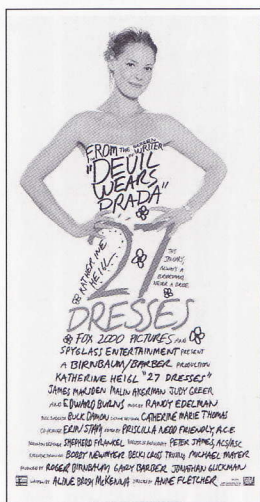 FROM THE SCREEN
WRITER
"DEVIL
WEARS
PRADA"
KATHERINE
HEIGL
27
THIS
JANUARY,
ALWAYS A
BRIDESMAID,
NEVER A BRIDE.
DRESSES
FOX 2000 PICTURES AND
SPYGLASS ENTERTAINMENT PRESENT
A BIRNBAUM/BARBER PRODUCTION
KATHERINE HEIGL "27 DRESSES"
JAMES MARSDEN MALIN AKERMAN JUDY GREER
AND EDWARD BURNS MUSIC BY RANDY EDELMAN
MUSIC SUPERVISOR BUCK DAMON COSTUME DESIGNER CATHERINE MARIE THOMAS
CO-PRODUCER ERIN STAM EDITED BY PRISCILLA NEDD FRIENDLY, A.C.E.
PRODUCTION DESIGNER SHEPHERD FRANKEL DIRECTOR OF PHOTOGRAPHY PETER JAMES, ACS/ASC
EXECUTIVE PRODUCERS BOBBY NEWMYER BECKI CROSS TRUJILLO MICHAEL MAYER
PRODUCED BY ROGER BIRNBAUM GARY BARBER JONATHAN GLICKMAN
WRITTEN BY ALINE BROSH McKENNA DIRECTED BY ANNE FLETCHER